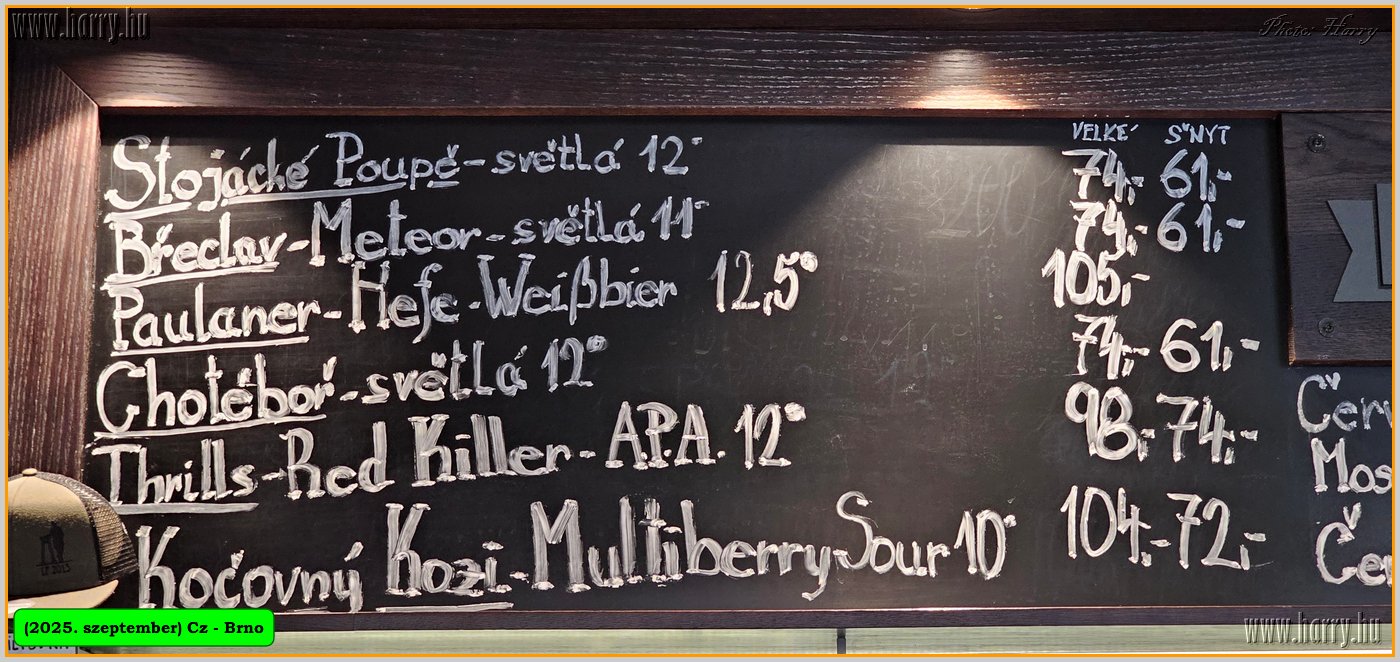 www.harry.hu
Photo: Harry
VELKÉ ŠNYT
Stojácké Poupě - světlá 12° 74,- 61,-
Břeclav - Meteor - světlá 11° 74,- 61,-
Paulaner - Hefe - Weißbier 12,5° 105,-
Chotěboř - světlá 12° 74,- 61,-
Thrills - Red Killer - A.P.A. 12° 98,- 74,-
Kočovný Kozi - Multiberry Sour 10° 104,- 72,-
Mos
(2025. szeptember) Cz - Brno
www.harry.hu